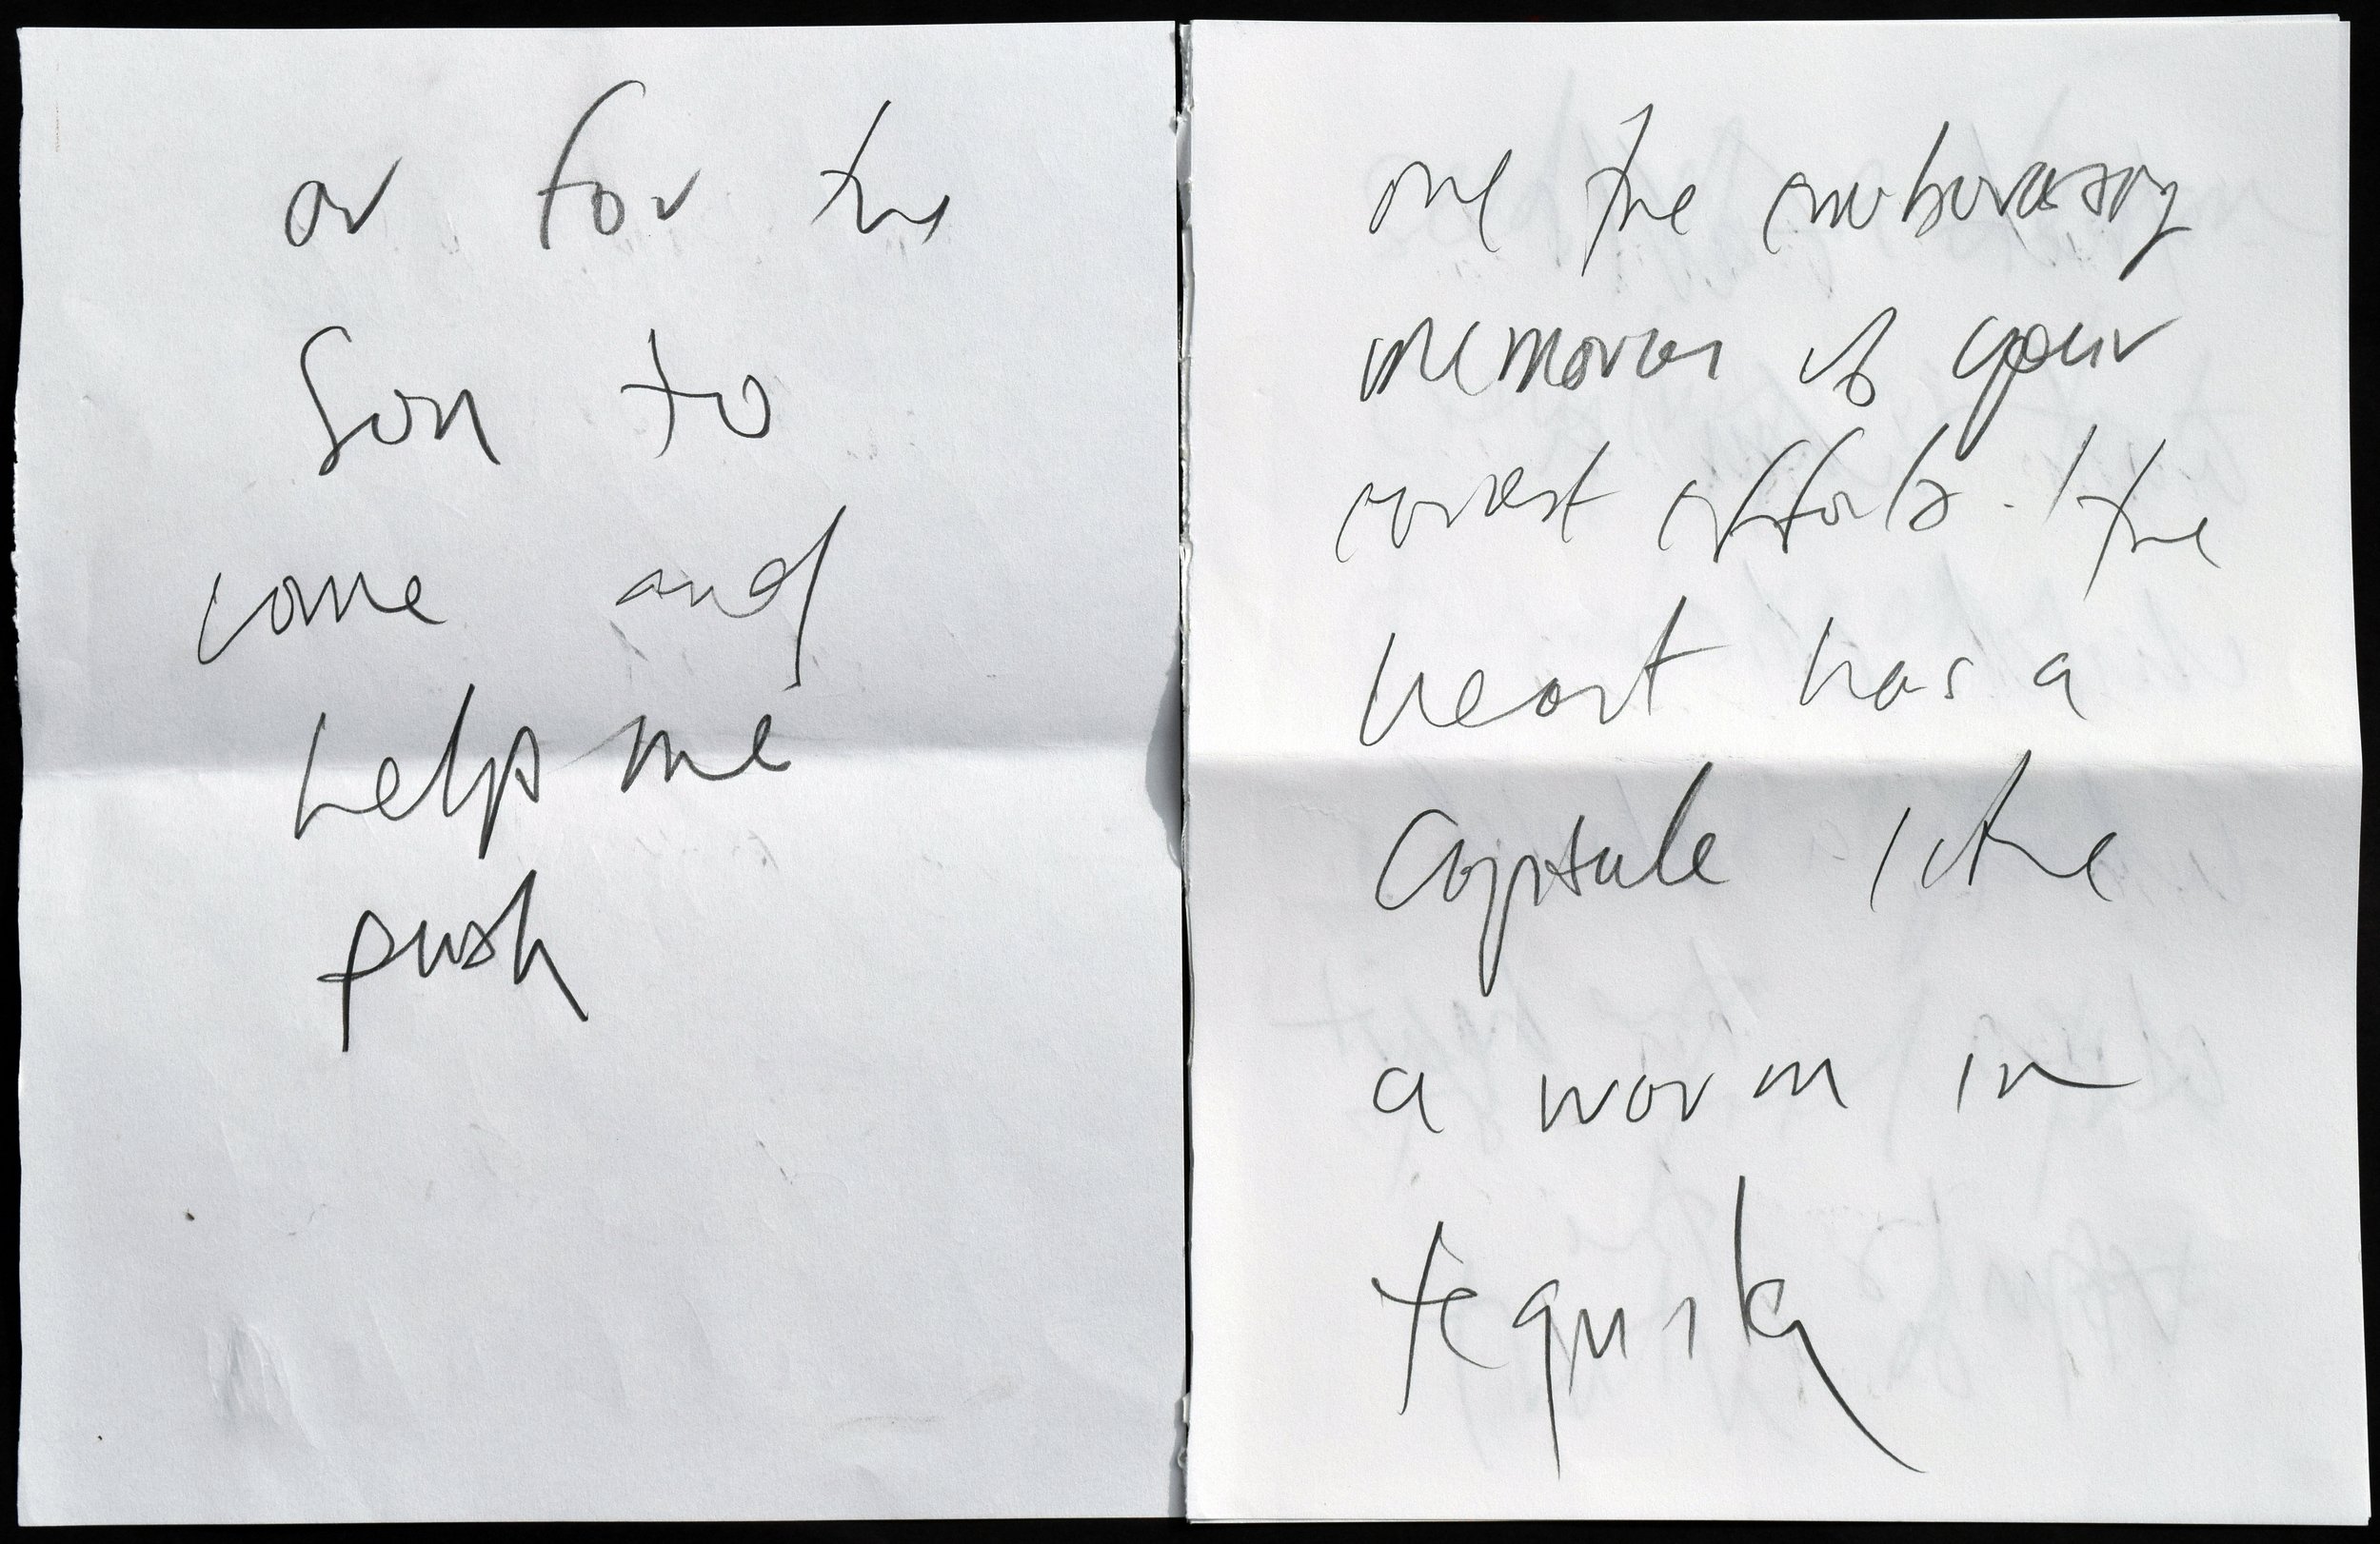 or for the
son to
come and
help me
push
are the embarrassing
memories of your
earnest efforts. / the
heart has a
capsule like
a worm in
tequila